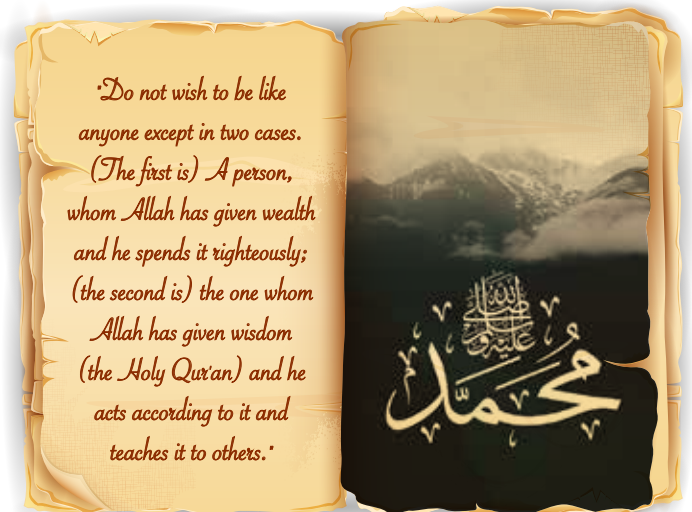 "Do not wish to be like
anyone except in two cases.
(The first is) A person,
whom Allah has given wealth
and he spends it righteously;
(the second is) the one whom
Allah has given wisdom
(the Holy Qur'an) and he
acts according to it and
teaches it to others."
صلى الله عليه وسلم
محمد